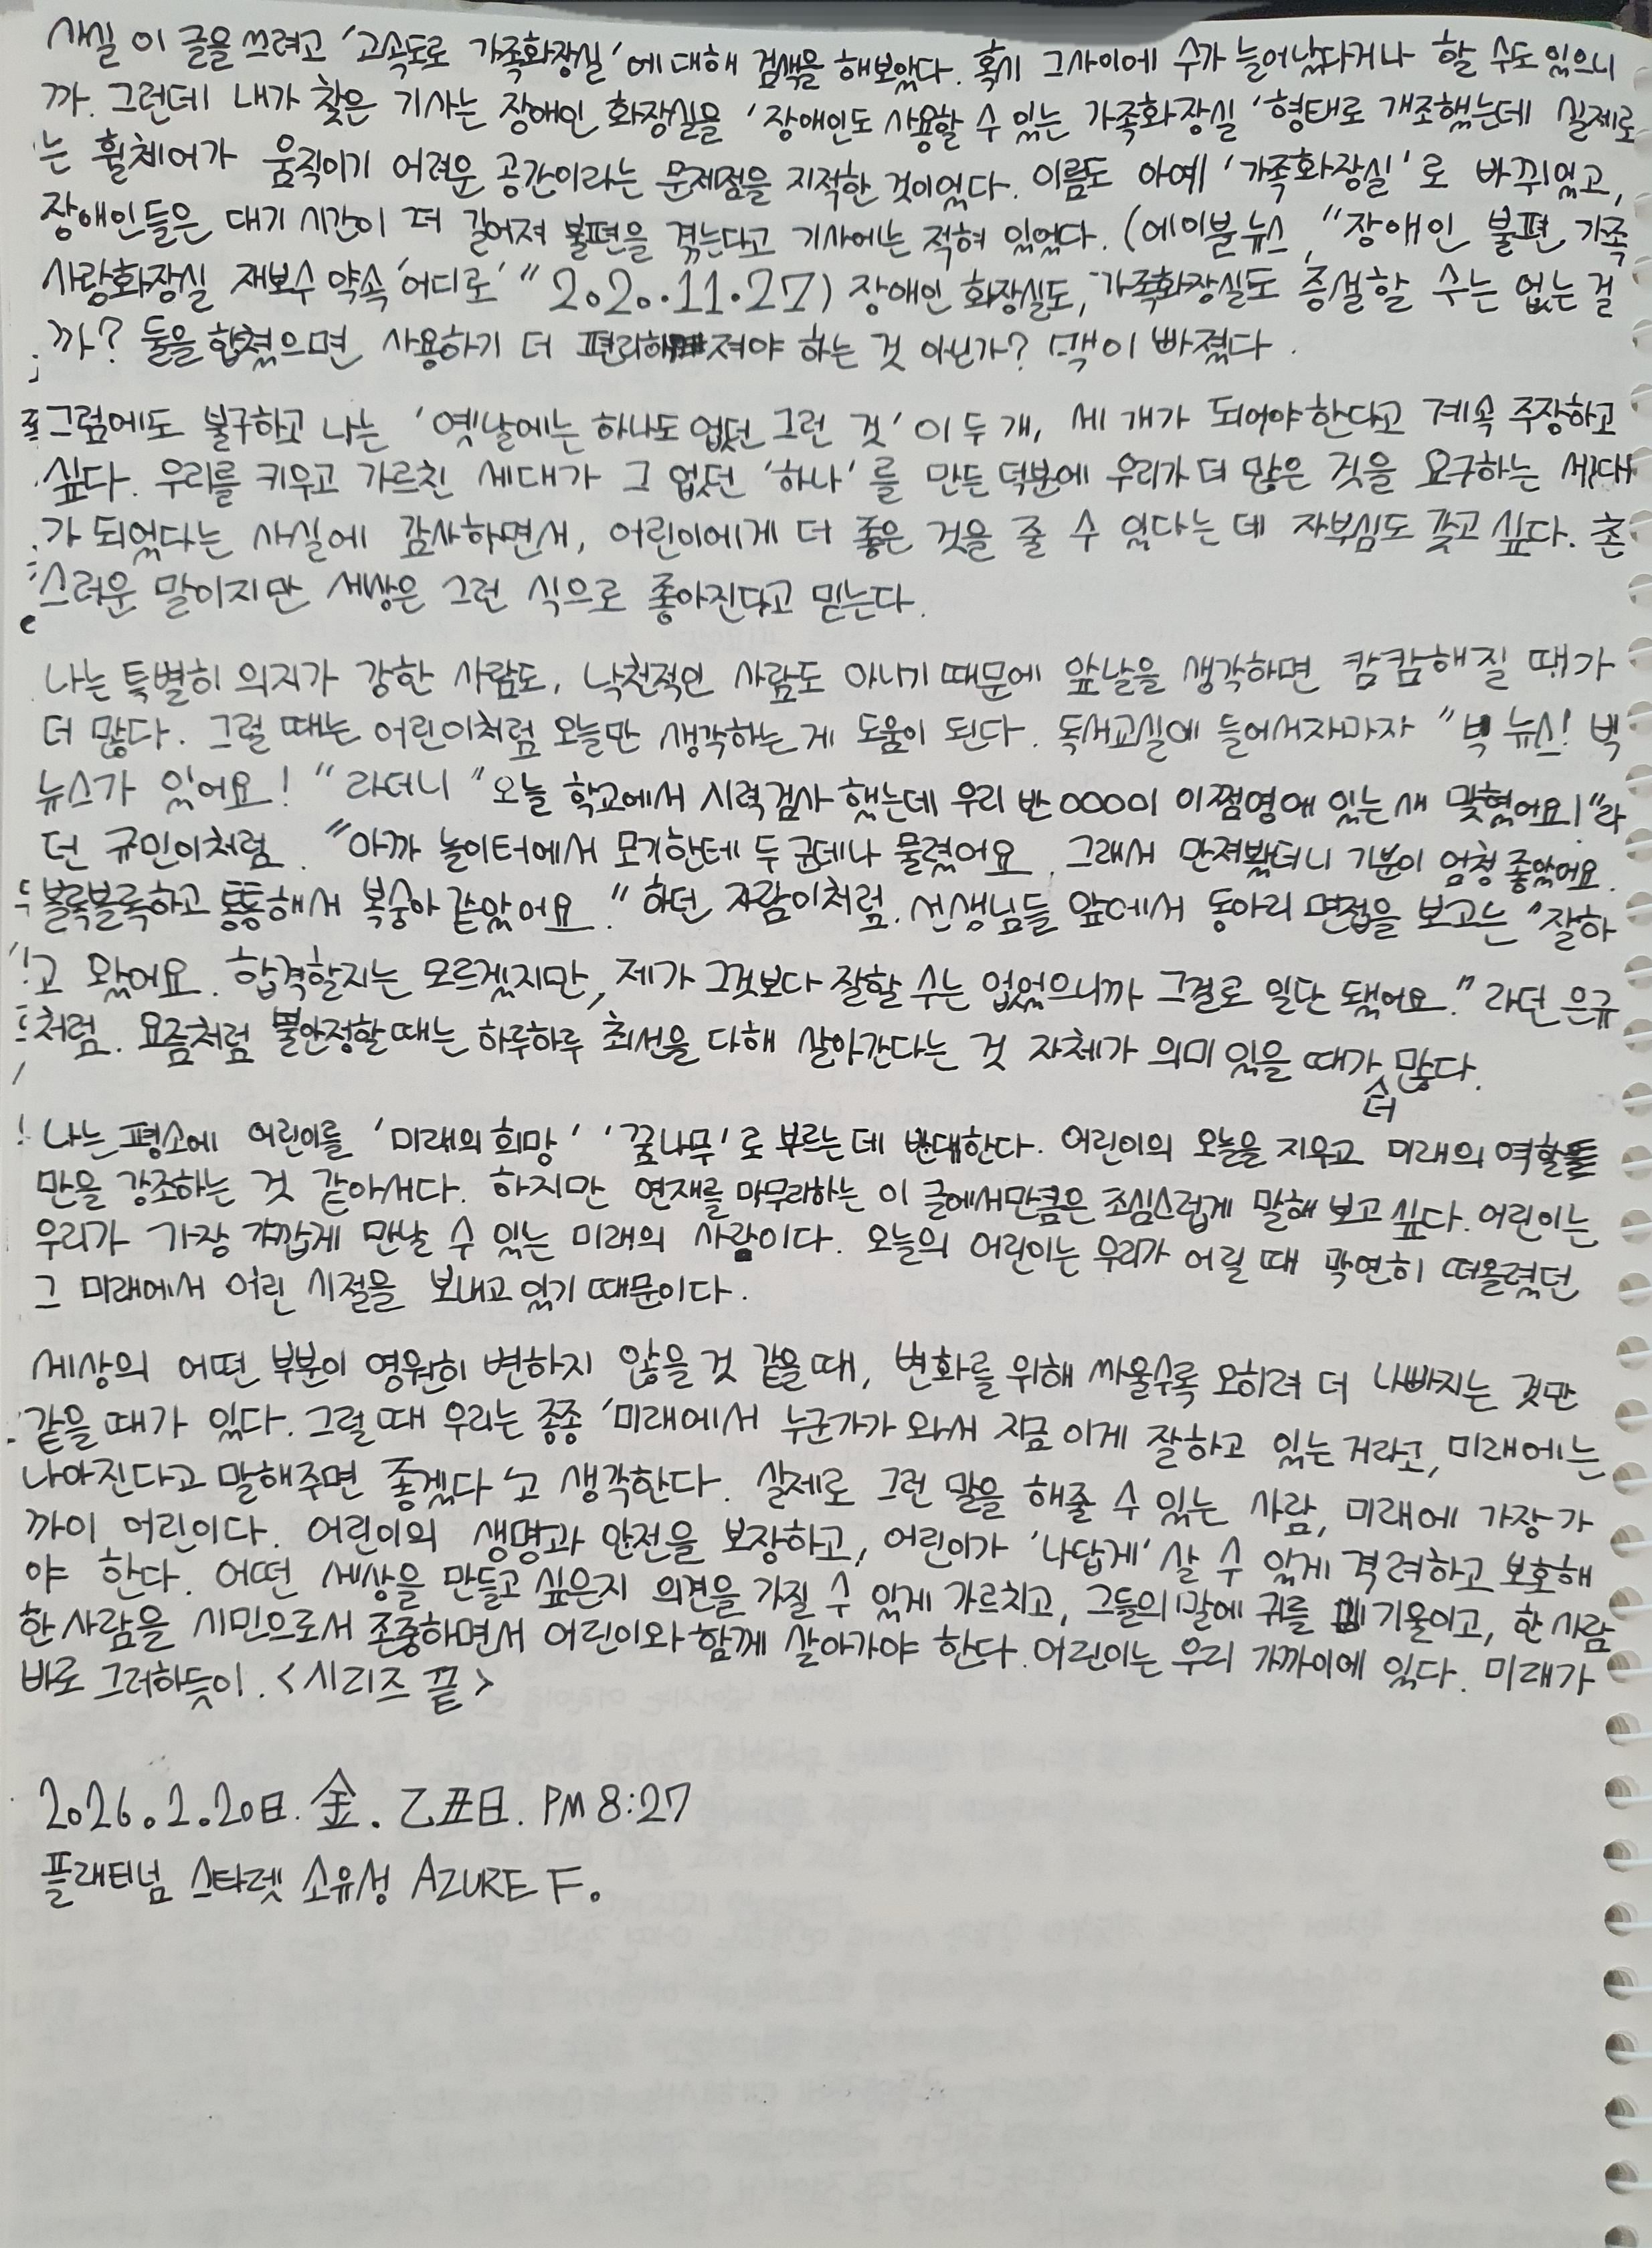 사실 이 글을 쓰려고 '고속도로 가족화장실'에 대해 검색을 해보았다. 혹시 그사이에 수가 늘어났다거나 할 수도 있으니
까. 그런데 내가 찾은 기사는 장애인 화장실을 '장애인도 사용할 수 있는 가족화장실' 형태로 개조했는데 실제로
는 휠체어가 움직이기 어려운 공간이라는 문제점을 지적한 것이었다. 이름도 아예 '가족화장실'로 바뀌었고,
장애인들은 대기 시간이 더 길어져 불편을 겪는다고 기사에는 적혀 있었다. (에이블뉴스, "장애인 불편 가족
사랑화장실 재보수 약속 '어디로'" 2020.11.27) 장애인 화장실도, 가족화장실도 증설할 수는 없는 걸
까? 둘을 합쳤으면 사용하기 더 편리해져야 하는 것 아닌가? 맥이 빠졌다.
그럼에도 불구하고 나는 '옛날에는 하나도 없던 그런 것'이 두 개, 세 개가 되어야한다고 계속 주장하고
싶다. 우리를 키우고 가르친 세대가 그 없던 '하나'를 만든 덕분에 우리가 더 많은 것을 요구하는 세대
가 되었다는 사실에 감사하면서, 어린이에게 더 좋은 것을 줄 수 있다는 데 자부심도 갖고 싶다. 촌
스러운 말이지만 세상은 그런 식으로 좋아진다고 믿는다.
나는 특별히 의지가 강한 사람도, 낙천적인 사람도 아니기 때문에 앞날을 생각하면 캄캄해질 때가
더 많다. 그럴 때는 어린이처럼 오늘만 생각하는 게 도움이 된다. 독서교실에 들어서자마자 "빅 뉴스! 빅
뉴스가 있어요!" 라더니 "오늘 학교에서 시력검사 했는데 우리 반 OOO이 이쩜영에 있는 새 맞혔어요!"라
던 규민이처럼. "아까 놀이터에서 모기한테 두 군데나 물렸어요. 그래서 만져봤더니 기분이 엄청 좋았어요.
볼록볼록하고 통통해서 복숭아 같았어요." 하던 자람이처럼. 선생님들 앞에서 동아리 면접을 보고는 "잘하
고 왔어요. 합격할지는 모르겠지만, 제가 그것보다 잘할 수는 없었으니까 그걸로 일단 됐어요." 라던 은규
처럼. 요즘처럼 불안정할 때는 하루하루 최선을 다해 살아간다는 것 자체가 의미 있을 때가 더 많다.
나는 평소에 어린이를 '미래의 희망' '꿈나무'로 부르는 데 반대한다. 어린이의 오늘을 지우고 미래의 역할
만을 강조하는 것 같아서다. 하지만 연재를 마무리하는 이 글에서만큼은 조심스럽게 말해 보고 싶다. 어린이는
우리가 가장 가깝게 만날 수 있는 미래의 사람이다. 오늘의 어린이는 우리가 어릴 때 막연히 떠올렸던
그 미래에서 어린 시절을 보내고 있기 때문이다.
세상의 어떤 부분이 영원히 변하지 않을 것 같을 때, 변화를 위해 싸울수록 오히려 더 나빠지는 것만
같을 때가 있다. 그럴 때 우리는 종종 '미래에서 누군가가 와서 지금 이게 잘하고 있는 거라고, 미래에는
나아진다고 말해주면 좋겠다'고 생각한다. 실제로 그런 말을 해줄 수 있는 사람, 미래에 가장 가
까이 어린이다. 어린이의 생명과 안전을 보장하고, 어린이가 '나답게' 살 수 있게 격려하고 보호해
야 한다. 어떤 세상을 만들고 싶은지 의견을 가질 수 있게 가르치고, 그들의 말에 귀를 기울이고, 한 사람
한 사람을 시민으로서 존중하면서 어린이와 함께 살아가야 한다. 어린이는 우리 가까이에 있다. 미래가
바로 그러하듯이. <시리즈 끝>
2026.2.20日. 金. 乙丑日. PM 8:27
플래티넘 스타렛 소유성 AZURE F.